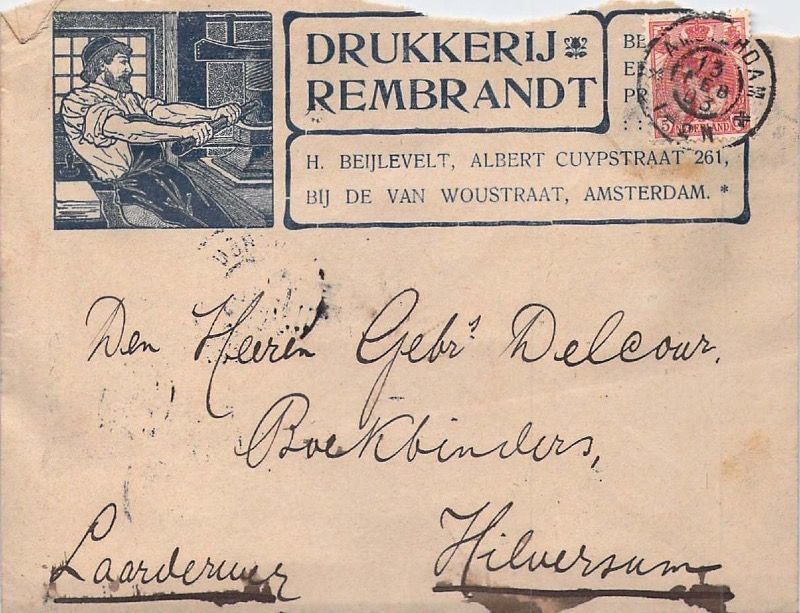 DRUKKERIJ
REMBRANDT
BE
E
PR
: :
H. BEIJLEVELT, ALBERT CUYPSTRAAT 261,
BIJ DE VAN WOUSTRAAT, AMSTERDAM. *
AMSTERDAM
13
FEB
03
5 NEDERLAND
Den Heeren Gebrs Delcour,
Boekbinders,
Laarderweg
Hilversum